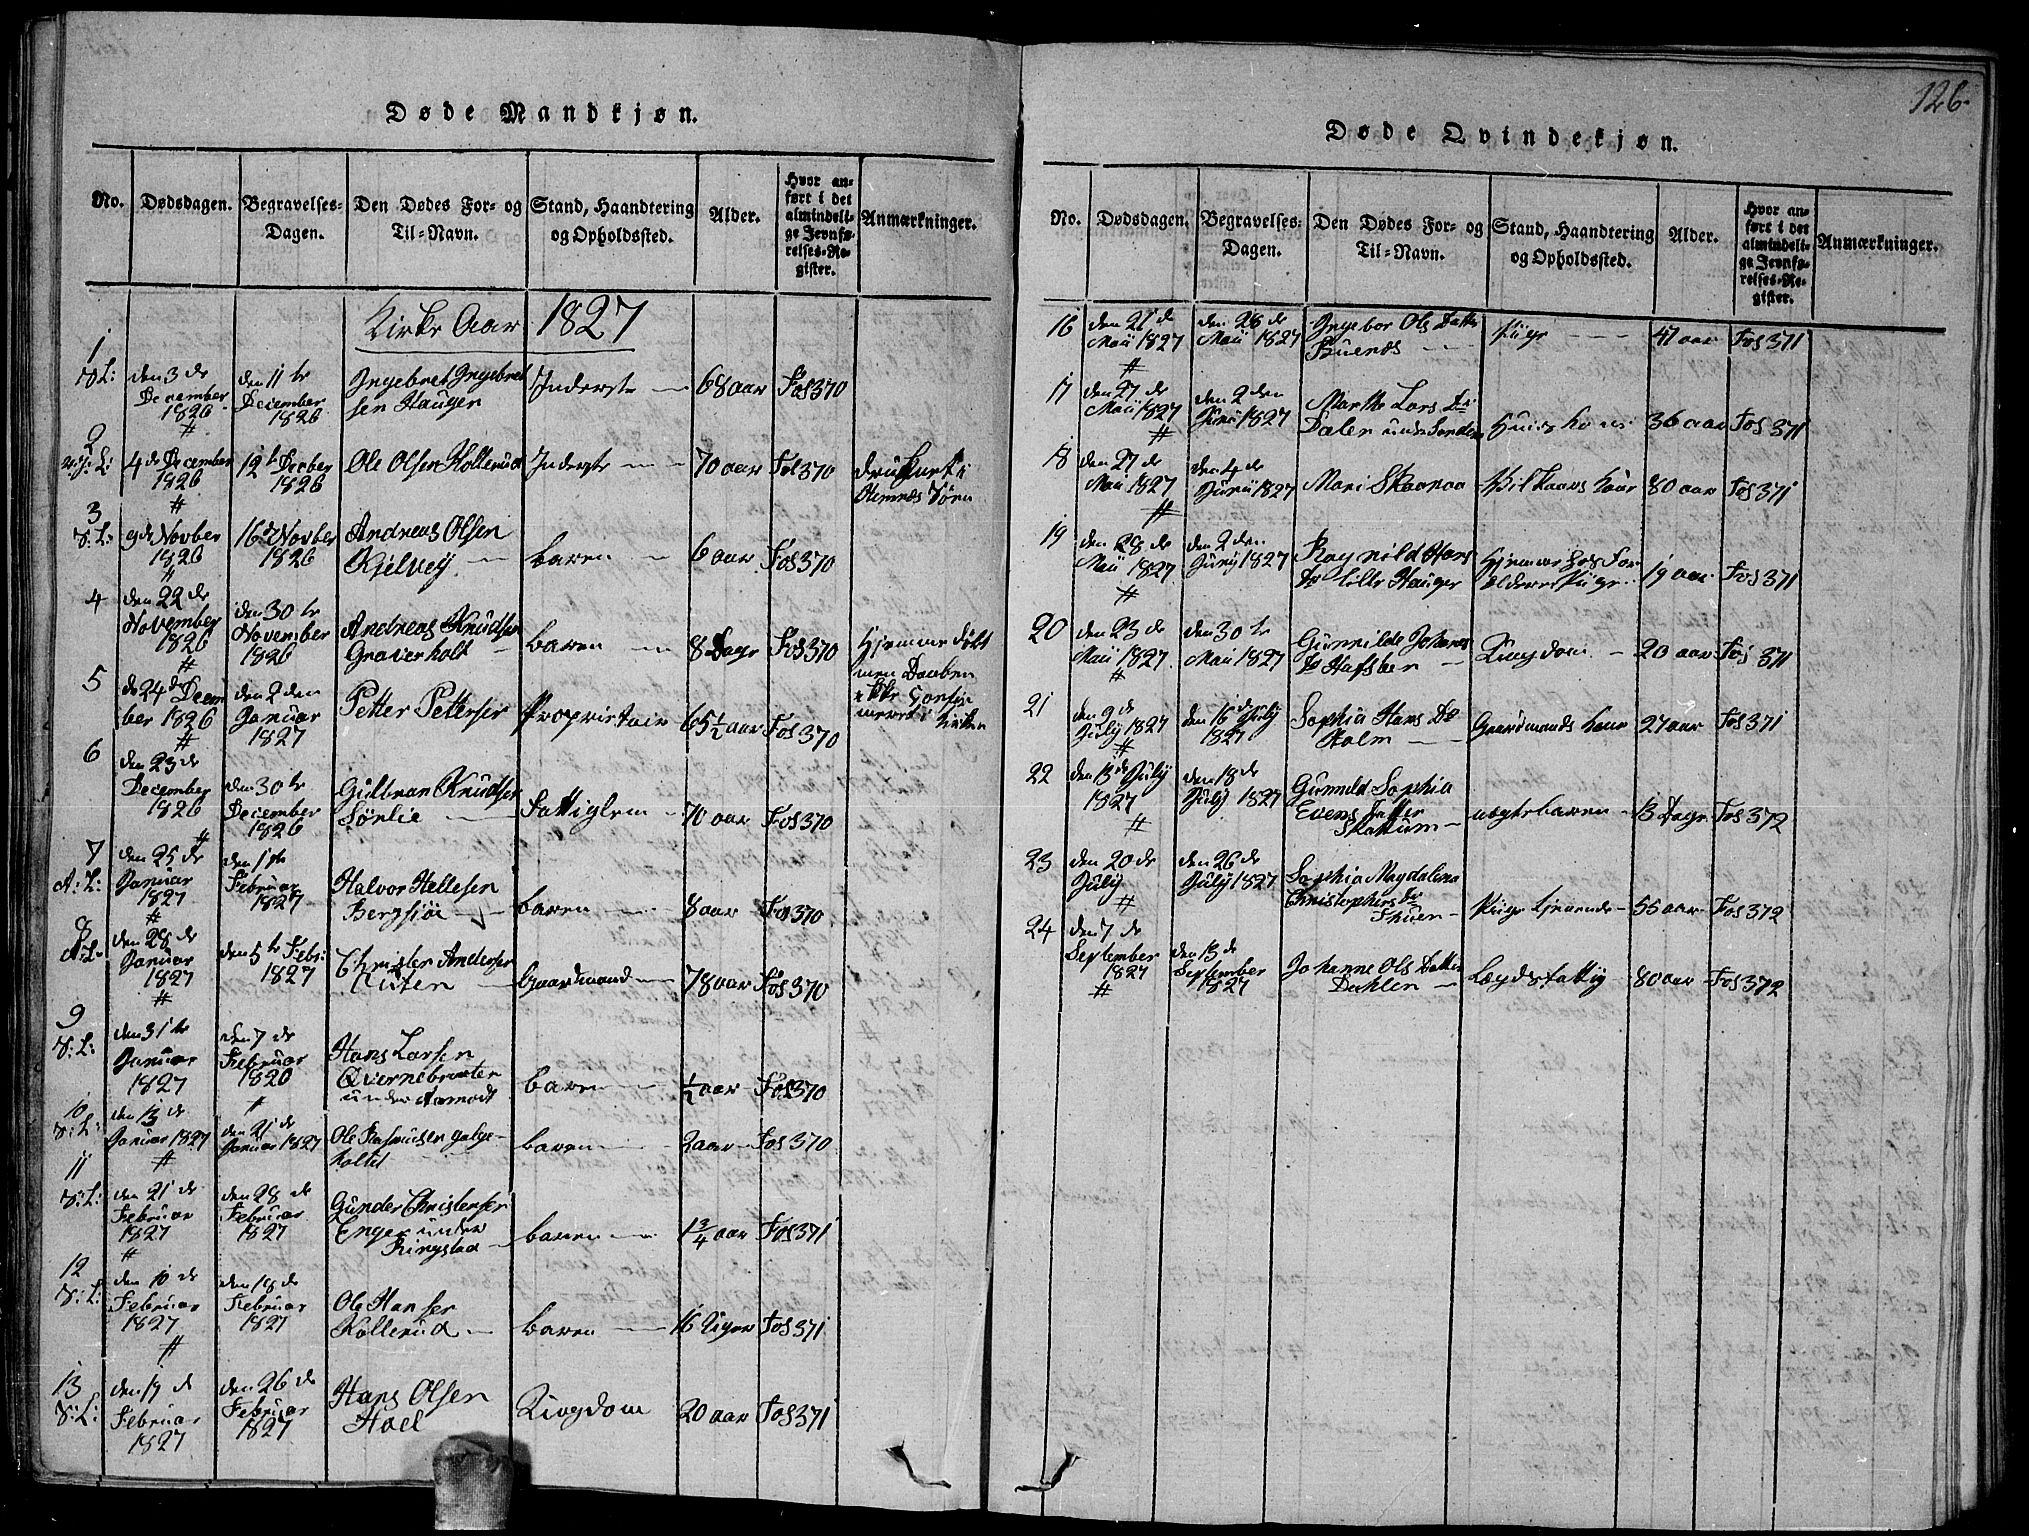 Døde Mandkjøn.
No.
Dødsdagen.
Begravelses-
Dagen.
Den Dødes For- og
Til-Navn.
Stand, Haandtering
og Opholdssted.
Alder.
Hvor an-
ført i det
almindeli-
ge Jevnfø-
relses-Re-
gister.
Anmærkninger.
Kirke Aar 1827
1
den 3 de
December
1826
den 11 te
December
1826
Ingebret Ingebret
sen Hauger
Inderste
68 aar
Fos 370
2
4 de December
1826
12te Decber
1826
Ole Olsen Kollerud
Inderste
70 aar
Fol 370
druknet i
3
9de Novber
1826
16de Novber
1826
Andreas Olsen
Kjelvey
baren
6 aar
Fos 370
4
den 22 de
November
1826
den 30 te
November
1826
Andreas Knudsen
Graverholt
baren
8 Dage
Fos 370
Hjemme døbt
men Daaben
ikke
5
de 24 de Decem
ber 1826
den 2 den
Januar
1827
Petter Pettersen
Proprietair
65 1/2 aar
Fos 370
6
den 23 de
December
1826
den 30 te
December
1826
Gulbran Knudsen
Sørlie
Fattiglem
70 aar
Fos 370
7
A: L:
den 25 de
Januar
1827
den 1 ste
Februar
1827
Halvor Hellesen
Bergsiøe
baren
8 aar
Fos 370
8
A: L:
den 28 de
Januar
1827
den 5 te Feb:
1827
Christen Andersen
Gaardmand
78 aar
Fos 370
9
den 31 te
Januar
1827
den 7 de
Februar
1820
Hans Larsen
Qvernebraaten
under Aamodt
baren
1/2 aar
Fos 370
10
den 13 de
Januar 1827
den 21 de
Januar 1827
Ole Rasmusen Galge-
holtet
baren
2 aar
Fos 370
11
den 21 de
Februar
1827
den 28 de
Februar
1827
Gunder Christensen
Enger under
Ringstad
baren
1 3/4 aar
Fos 371
12
den 10 de
Februar
1827
den 18 de
Februar
1827
Ole Hansen
Kollerud
baren
16 Uger
Fos 371
13
den 19 de
Februar
1827
den 26 de
Februar
1827
Hans Olsen
Hoel
Ungdom
20 aar
Fos 371
126.
Døde Qvindekjøn.
No.
Dødsdagen.
Begravelses-
Dagen.
Den Dødes For- og
Til-Navn.
Stand, Haandtering
og Opholdssted.
Alder.
Hvor an-
ført i det
almindeli-
ge Jevnfø-
relses-Re-
gister.
Anmærkninger.
16
den 21 de
Maii 1827
den 28 de
Maii 1827
Ingebor Ols Datter
Buenæs
Pige
41 aar
Fos 371
17
den 27 de
Maii 1827
den 2 den
Junii 1827
Marthe Lars Dr
Dalen under
Huus kone
36 aar
Fos 371
18
den 27 de
Maii 1827
den 4 de
Junii 1827
Mari Skaaraa
80 aar
Fos 371
19
den 28 de
Maii 1827
den 2 den
Junij 1827
Ragnild Hans
Dr Lille Hauger
Hjemme hos For
ældrene Pige
19 aar
Fos 371
20
den 23 de
Maii 1827
den 30 te
Maii 1827
Gunnilde Johans
Dr Hafsben
Ungdom
20 aar
Fos 371
21
den 9 de
July 1827
den 16 de July
1827
Sophia Hans Dr
Holm
Gaardmands kone
27 aar
Fos 371
22
den 13 de July
1827
den 18 de
July 1827
Gunnild Sophia
Evens Datter
Skattum
uægte baren
13 Dage
Fos 372
23
den 20 de
July
den 26 de
July 1827
Sophia Magdalena
Christophers Dr
Thuen
Pige tjenende
55 aar
Fos 372
24
den 7 de
September
1827
den 13 de
September
1827
Johanne Ols Datter
Dahlen
Lægdsfattig
80 aar
Fos 372